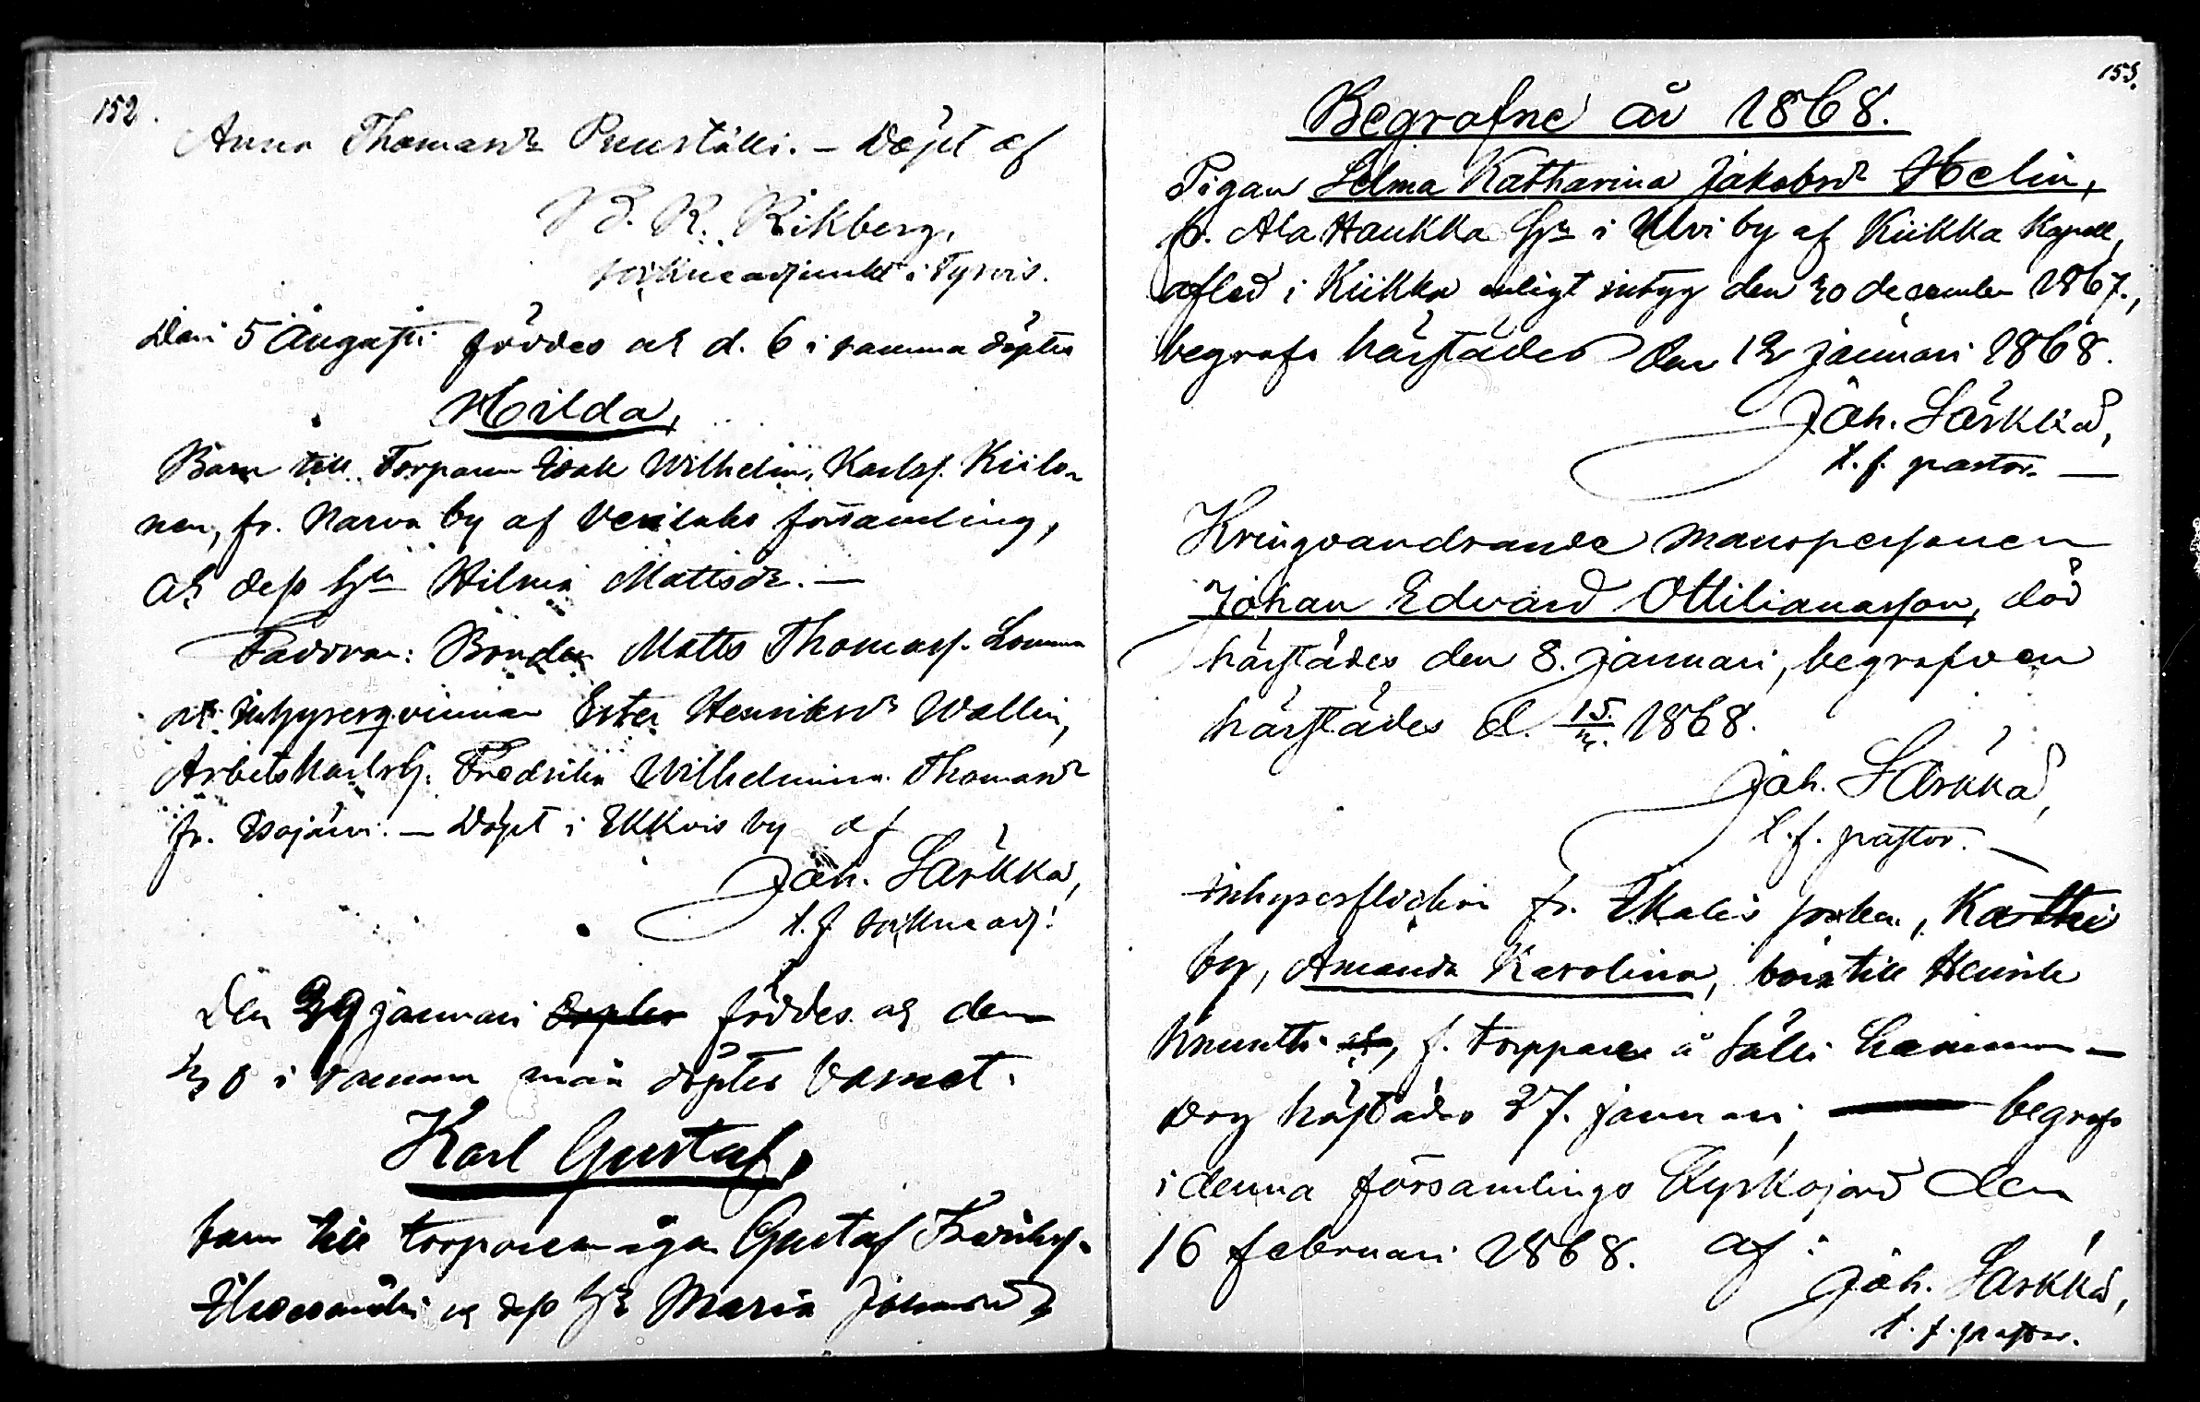 152.
Anna Thomasdr Puuställi. – Döpt af
K. R. Rikberg,
sockneadjunkt i Tyrvis.
Den 5 Augusti föddes ock d. 6 i samma döptes
Hilda,
Barn till Torparen Isak Wilhelm Karlsf. Kiilo-
nen, fr. Narva by af Vesilaks församling,
ock dess hu Hilma Mattsdr. –
Faddrar: Bonden Matts Thomasf. Lomma
ock Inhysesqvinnan Ester Henriksdr Wallin,
Arbetskarlsh. Fredrika Wilhelmina Thomasdr
fr. – Döpt i by af
Joh. Särkkä,
t. f. sockneadj:
Den 29 januari föddes ock den
30 i samma mån döptes barnet.
Karl Gustaf,
barn till torparen Gustaf
ock dess hu Maria Johansdr
153.
Begrafne år 1868.
Pigan Selma Katharina Jakobsdr Helin,
fr. Ala Haukka hn i Ulvi by af Kiikka Kapell,
afled i Kiikka enligt intyg den 30 december 1867,
begrafs härstädes den 12 januari 1868.
Joh. Särkkä,
t. f. pastor. –
Kringvandrande manspersonen
Johan Edvard Ottilianasson, död
härstädes den 8. januari, begrafven
härstädes d. 15. 1868.
Joh. Särkkä,
t. f. pastor. –
Inhysesflickan fr. Ikalis socken,
by, Amanda Karolina, barn till Henrik
Knuutti, f. torppare å Sälli hemman –
dog härstädes 27. januari, begrofs
i denna församlings Kyrkojord den
16 februari 1868. af:
Joh. Särkkä,
t. f. pastor.